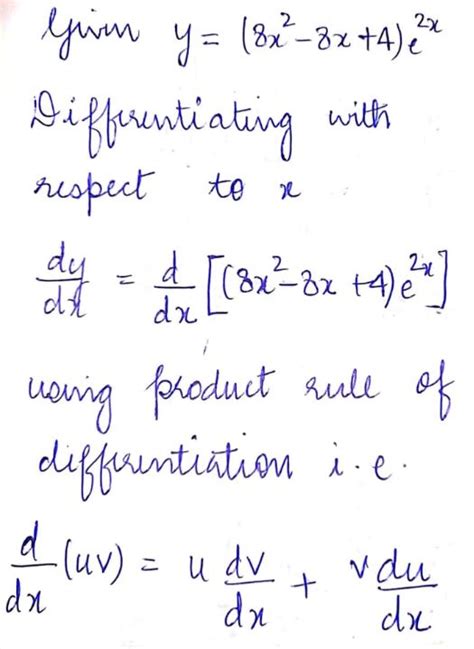 Given y = (8x²-8x+4)e²ˣ
Differentiating with
respect to x
dy/dx = d/dx [(8x²-8x+4)e²ˣ]
using product rule of
differentiation i.e.
d/dx (uv) = u dv/dx + v du/dx